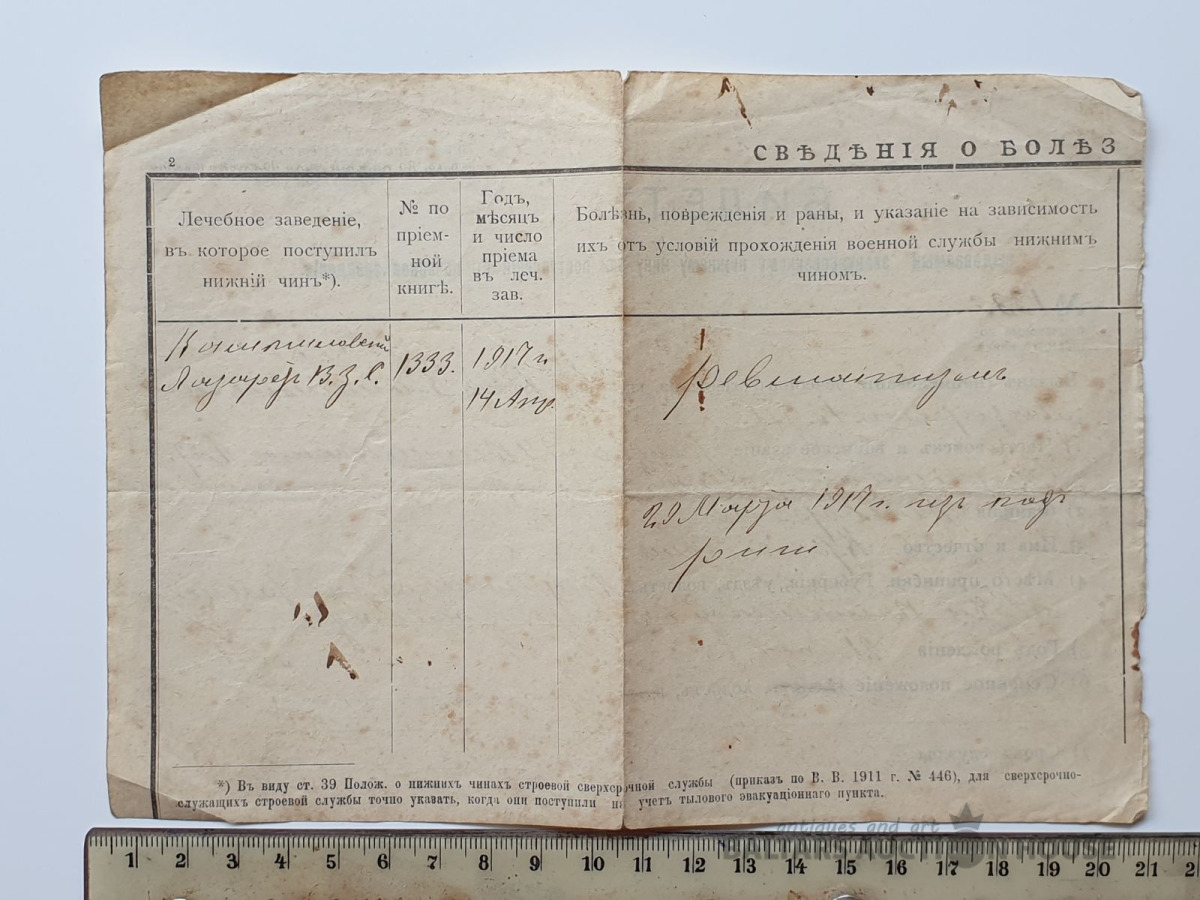 2
СВѢДѢНІЯ О БОЛѢЗ
Лечебное заведеніе,
въ которое поступилъ
нижній чинъ*).
№ по
пріем-
ной
книгѣ.
Годъ,
мѣсяцъ
и число
пріема
въ леч.
зав.
Болѣзнь, поврежденія и раны, и указаніе на зависимость
ихъ отъ условій прохожденія военной службы нижнимъ
чиномъ.
Лазаретъ В.З.С.
1333.
1917 г.
14 Апр.
Ревматизмъ
29 Марта 1917 г. изъ подъ
Риги
*) Въ виду ст. 39 Полож. о нижнихъ чинахъ строевой сверхсрочной службы (приказъ по В. В. 1911 г. № 446), для сверхсрочно-
служащихъ строевой службы точно указать, когда они поступили на учетъ тылового эвакуаціоннаго пункта.
antiques and art
1 2 3 4 5 6 7 8 9 10 11 12 13 14 15 16 17 18 19 20 21 2